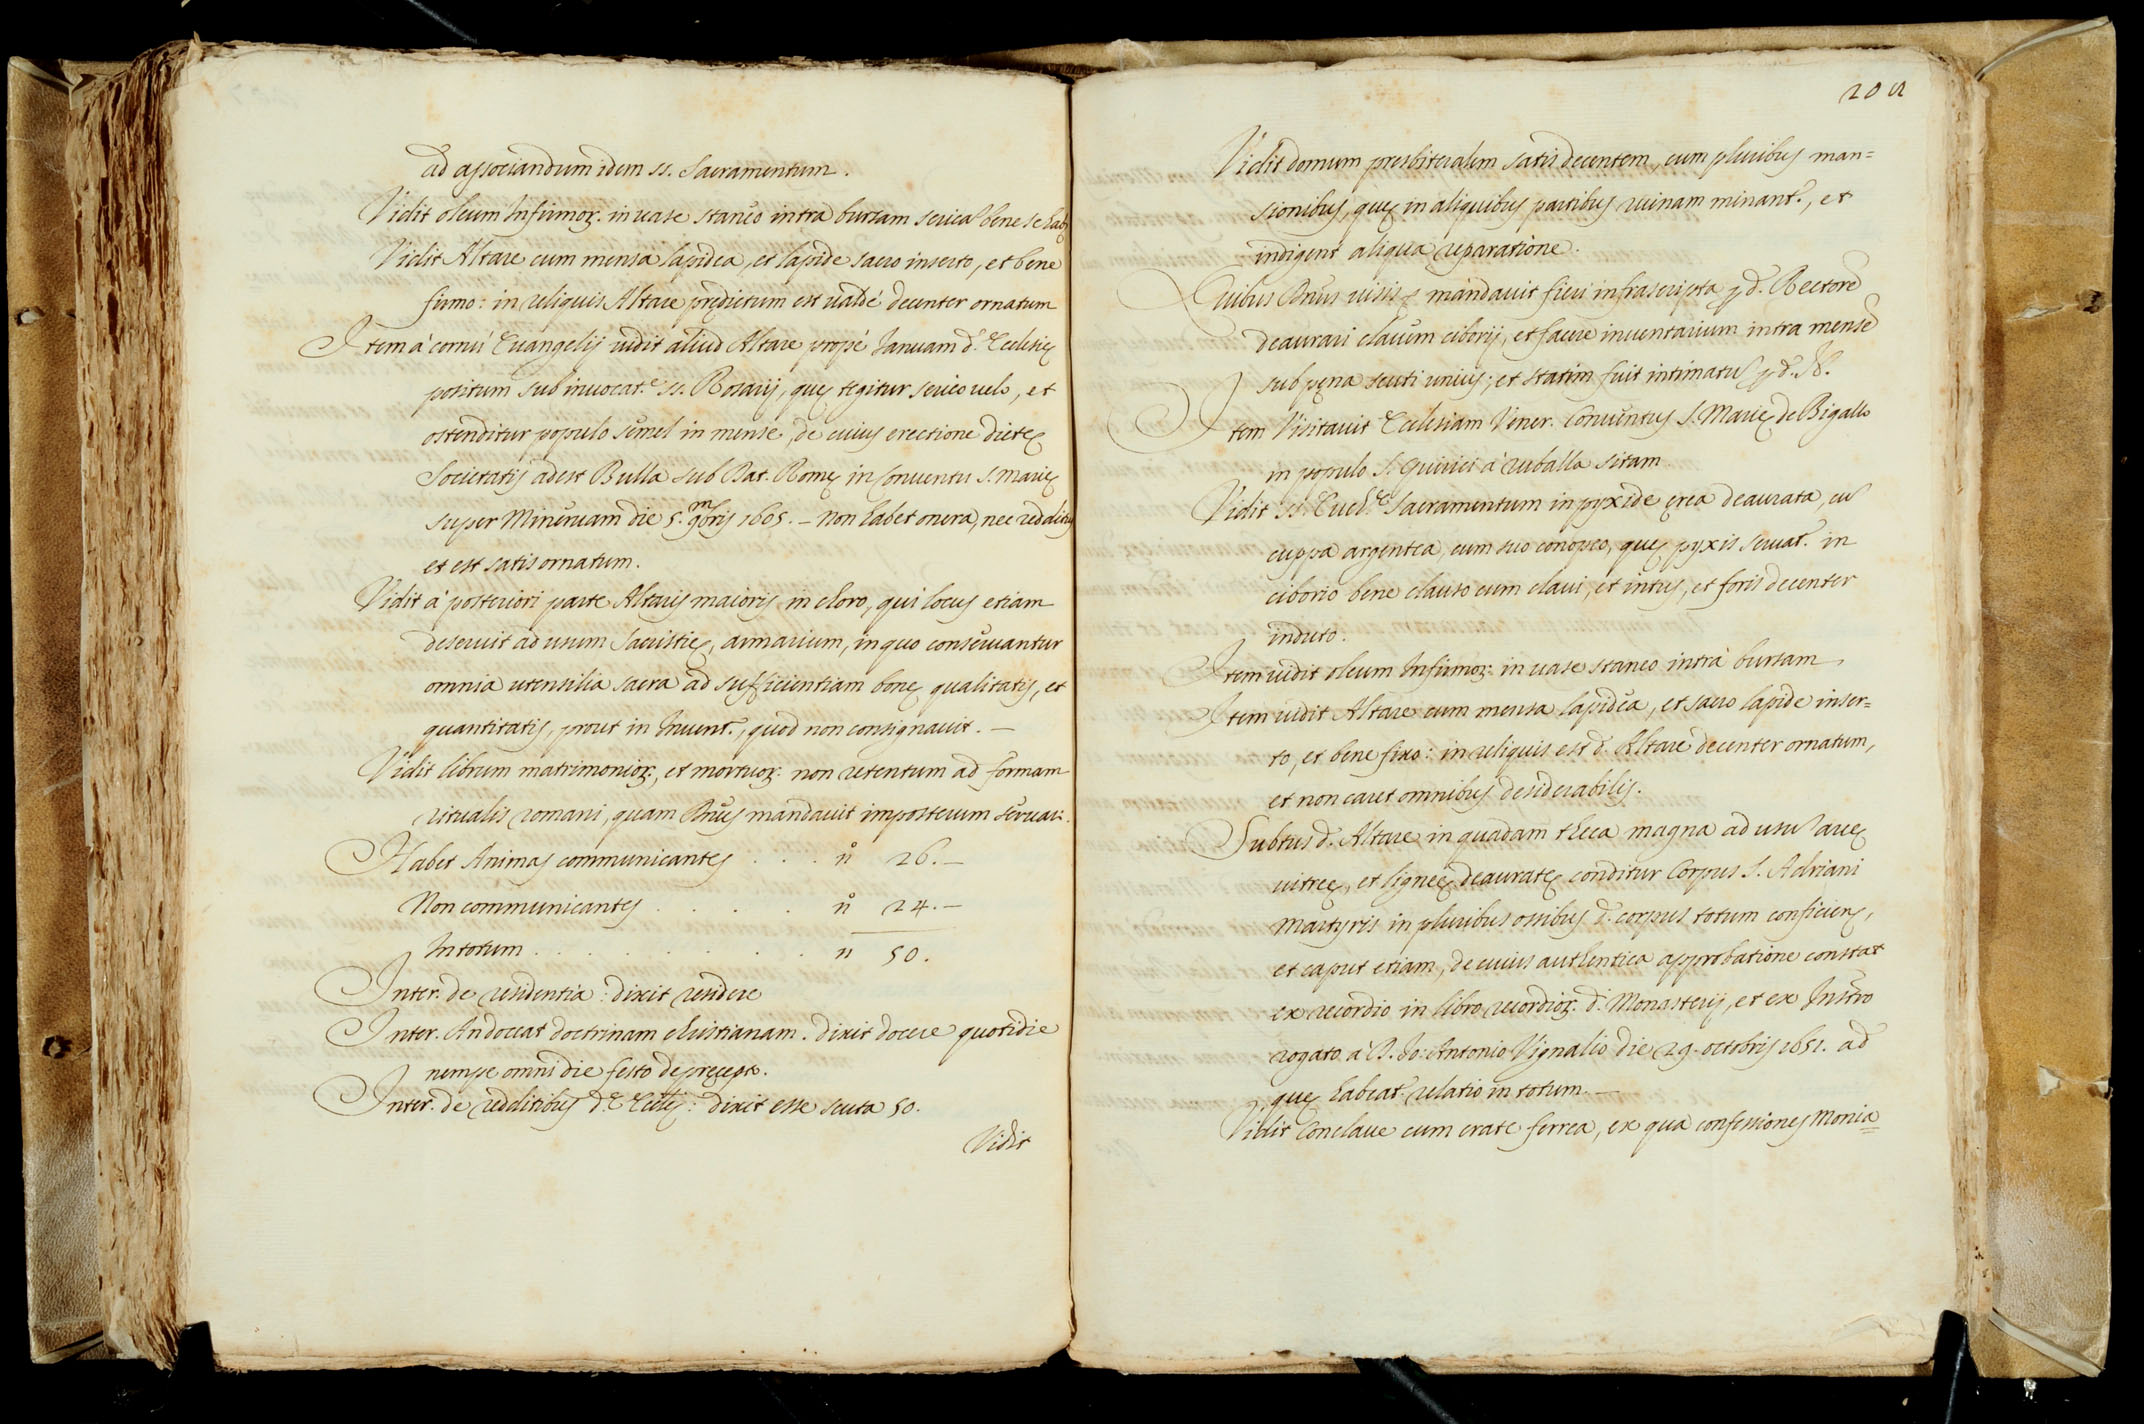 ad associandum idem ss. Sacramentum.
Vidit oleum Infirmor: in uase staneo intra bursam serica bene se hab
Vidit Altare cum mensa lapidea, et lapide sacro inserto, et bene
firmo: in reliquis Altare predictum est ualdè decenter ornatum
Item à cornu Euangelij uidit aliud Altare propè Januam d. Ecclesię
positum sub inuocat.e ss. Rosarij, que tegitur serico uelo, et
ostenditur populo semel in mense, de cuius erectione dictę
Societatis adest Bulla sub Dat. Romę in Conuentu S. Marię
super Mineruam die 5. 9mbris 1605. – Non habet onera, nec redditus
et est satis ornatum.
Vidit à posteriori parte Altaris maioris in choro, qui locus etiam
deseruit ad usum Sacristię, armarium, in quo conseruantur
omnia utensilia sacra ad sufficientiam bonę qualitatis, et
quantitatis, prout in Inuent.o, quod non consignauit. –
Vidit librum matrimonior:, et mortuor: non retentum ad formam
ritualis romani, quam Dnus mandauit imposterum seruari.
Habet Animas communicantes . . . nº 26. –
Non communicantes . . . . . nº 24. –
In totum . . . . . . . . . n 50.
Inter. de residentia: dixit residere
Inter. An doceat doctrinam christianam. dixit docere quotidie
nempe omni die festo de precepto.
Inter. de redditibus d. Ecclię: dixit esse scuta 50.
Vidit
202
Vidit domum presbiteralem satis decentem, cum pluribus man=
sionibus, quę in aliquibus partibus ruinam minant.r, et
indigent aliqua reparatione.
Quibus Dnus uisis mandauit fieri infrascripta p d. Rectore
deaurari clauem ciborij, et facere inuentarium intra mense
sub pęna scuti unius; et statim fuit intimatu p d. N.
Item Visitauit Ecclesiam Vener. Conuentus S. Marię de Bigallo
in populo S. Quirici à ruballa sitam
Vidit ss. Euch.e Sacramentum in pyxide ęrea deaurata, cu
cuppa argentea, cum suo conopeo, quę pyxis seruat.r in
ciborio bene clauso cum claui, et intus, et foris decenter
induto.
Item uidit oleum Infirmor: in uase staneo intrà bursam
Item uidit Altare cum mensa lapidea, et sacro lapide inser=
to, et bene fixo: in reliquis est d. Altare decenter ornatum,
et non caret omnibus desiderabilis.
Subtus d. Altare in quadam theca magna ad usu arcę
uitreę, et ligneę deauratę conditur Corpus S. Adriani
Martyris in pluribus ossibus d. corpus totum conficiens,
et caput etiam, de cuius authentica approbatione constat
ex recordio in libro recordior: d. Monasterij, et ex Instro
rogato à D. Jo: Antonio Vignalio die 29. octobris 1651. ad
quę habeat.r relatio in totum. –
Vidit Conclaue cum crate ferrea, ex qua confessiones Monia=